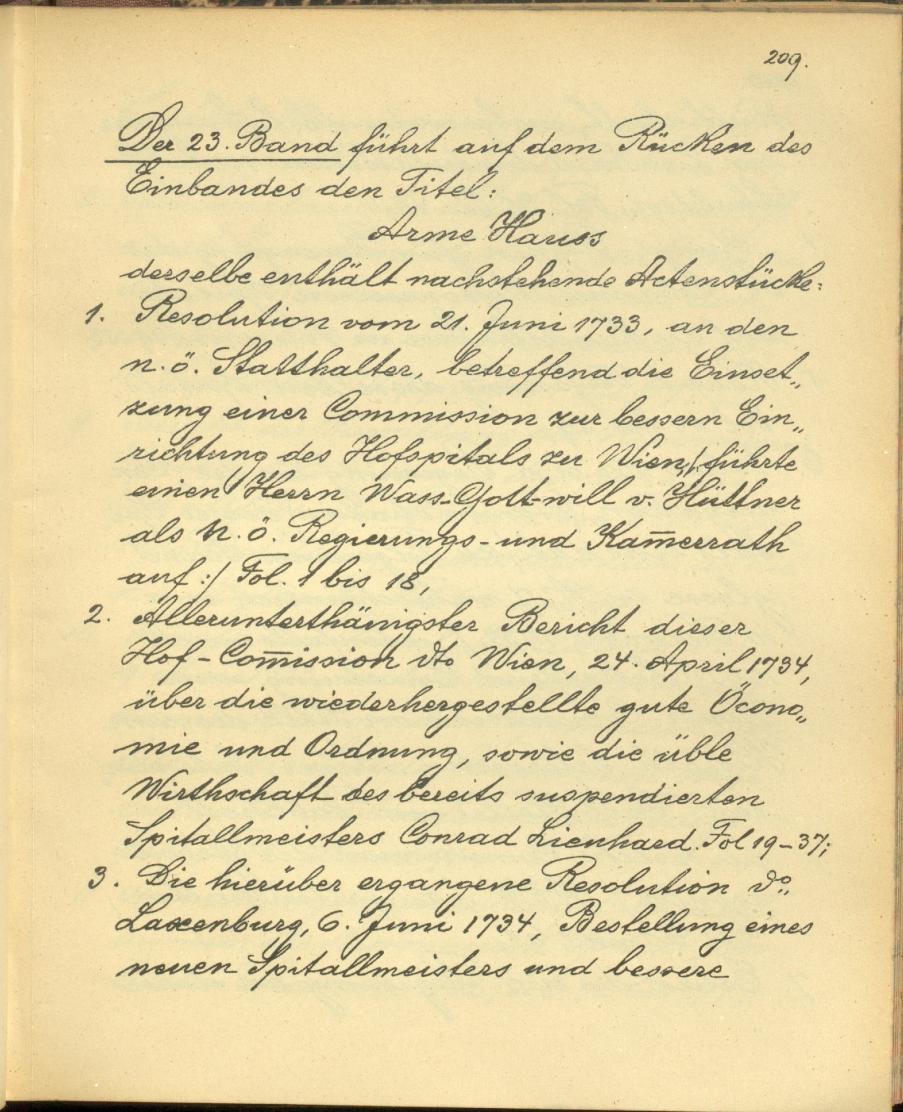 209.
Der 23. Band führt auf dem Rücken des
Einbandes den Titel:
Arme Hauss
derselbe enthält nachstehende Actenstücke:
1. Resolution vom 21. Juni 1733, an den
n. ö. Statthalter, betreffend die Einset„
zung einer Commission zur bessern Ein„
richtung des Hofspitals zu Wien /: führte
einen Herrn Wass-Gott-will v. Hüttner
als N. ö. Regierungs- und Kam̅errath
auf :/ Fol. 1 bis 18,
2. Allerunterthänigster Bericht dieser
Hof-Com̅ission dto Wien, 24. April 1734,
über die wiederhergestellte gute Öcono„
mie und Ordnung, sowie die üble
Wirthschaft des bereits suspendierten
Spitallmeisters Conrad Lienhard. Fol 19-37;
3. Die hierüber ergangene Resolution do„
Laxenburg, 6. Juni 1734, Bestellung eines
neuen Spitallmeisters und bessere